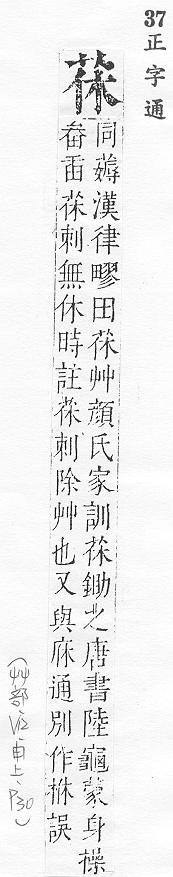 37
正字通
茠
同薅漢律疁田茠艸顔氏家訓茠鋤之唐書陸龜蒙身操
畚臿茠刺無休時註茠刺除艸也又與庥通別作㧁誤
(艸部 申上、P30)